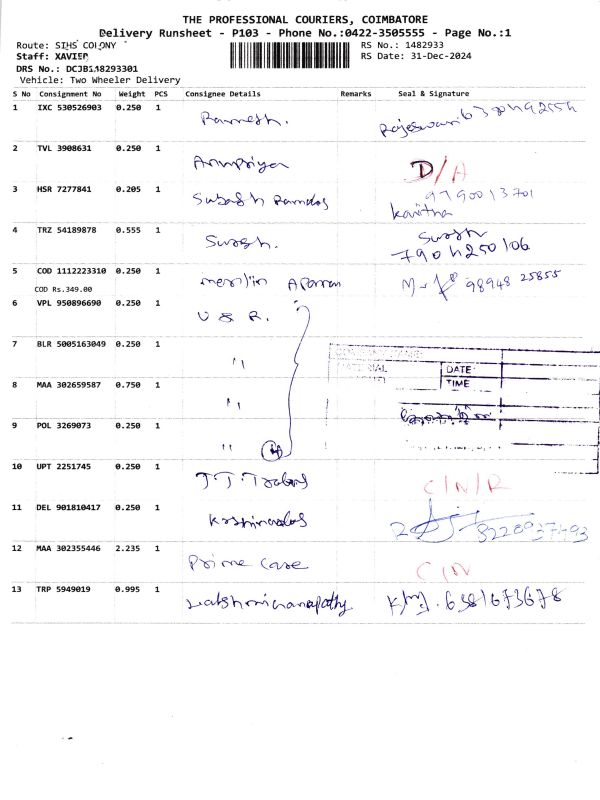 THE PROFESSIONAL COURIERS, COIMBATORE
Delivery Runsheet - P103 - Phone No.:0422-3505555 - Page No.:1
Route: SIHS COLONY
Staff: XAVIER
RS No.: 1482933
DRS No.: DCJB148293301
RS Date: 31-Dec-2024
Vehicle: Two Wheeler Delivery
S No Consignment No Weight PCS Consignee Details Remarks Seal & Signature
1 IXC 530526903 0.250 1 Ramesh. Rajeswari
2 TVL 3908631 0.250 1 Arunpriya D/A
3 HSR 7277841 0.205 1 Subash Ramdas 9790013701
Kavitha
4 TRZ 54189878 0.555 1 Suresh. Suresh
5 COD 1112223310 0.250 1 merlin 98948 25855
COD Rs.349.00
6 VPL 950896690 0.250 1 V & R.
7 BLR 5005163049 0.250 1 "
DATE
8 MAA 302659587 0.750 1 " TIME
9 POL 3269073 0.250 1 " 4
10 UPT 2251745 0.250 1 C/N/R
11 DEL 901810417 0.250 1
12 MAA 302355446 2.235 1 Prime Care C/N
13 TRP 5949019 0.995 1 Lakshmiganapathy 6381673678